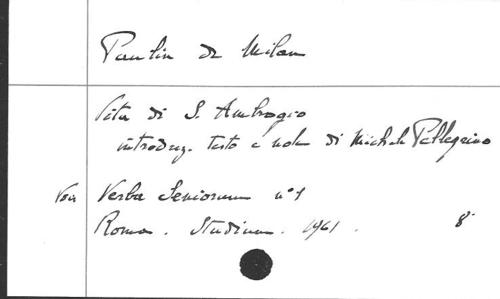 Paulin de Milan
Vita di S. Ambrogio
introduz. testo e note di Michele Pellegrino
Voir Verba Seniorum n°1
Roma. Studium. 1961. 8°